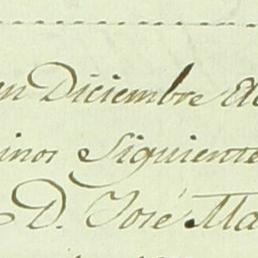 en Diciembre de
inos Siguiente
D. José Ma